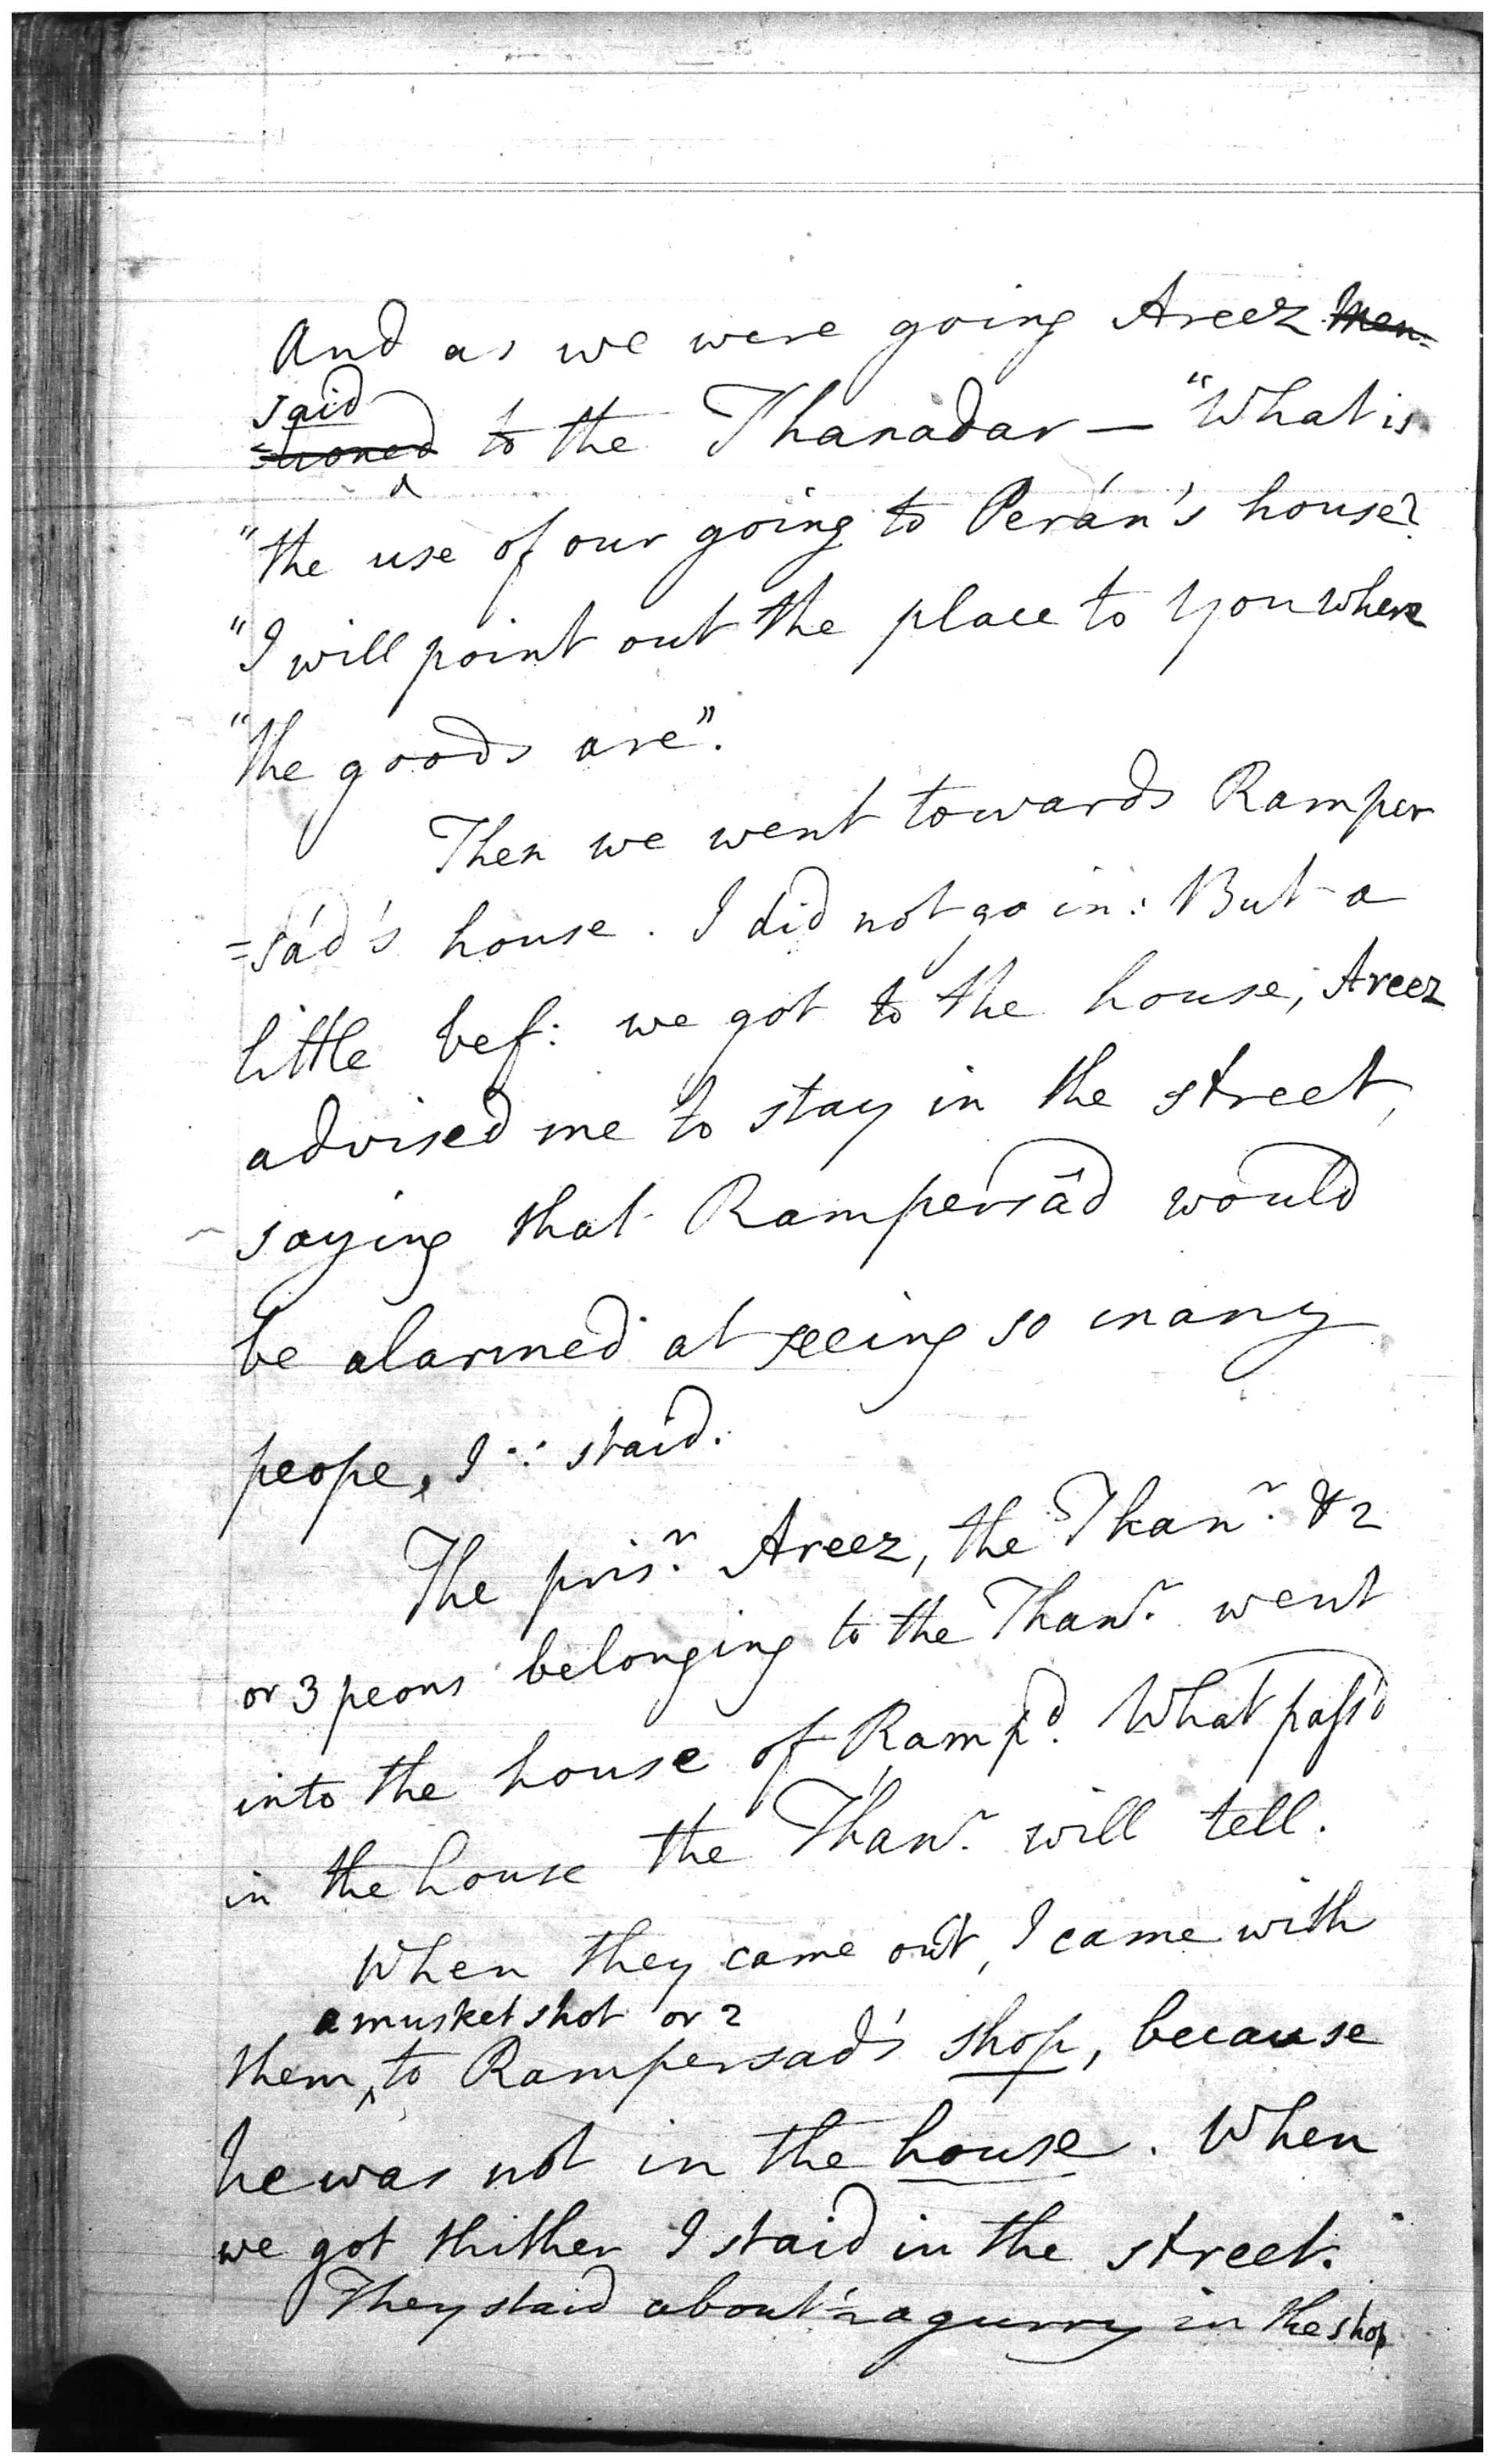 And as we were going Areez ~~men=~~
said
~~=tioned~~ ^ to the Thanadar — "What is
"the use of our going to Perán's house?
"I will point out the place to you where
"the goods are".
Then we went towards Ramper
=sád's house. I did not go in: But a
little bef: we got to the house, Areez
advised me to stay in the street,
saying that Rampersâd would
be alarmed at seeing so many
peope, I ∵ staid.
The pris.r Areez, the Than.r & 2
or 3 peons belonging to the Than.r went
into the house of Ramp.d What pass'd
in the house the Than.r will tell.
When they came out, I came with
a musket shot or 2
them ^ to Rampersad's shop, because
he was not in the house. When
we got thither I staid in the street.
They staid about ½ a gurry in the shop